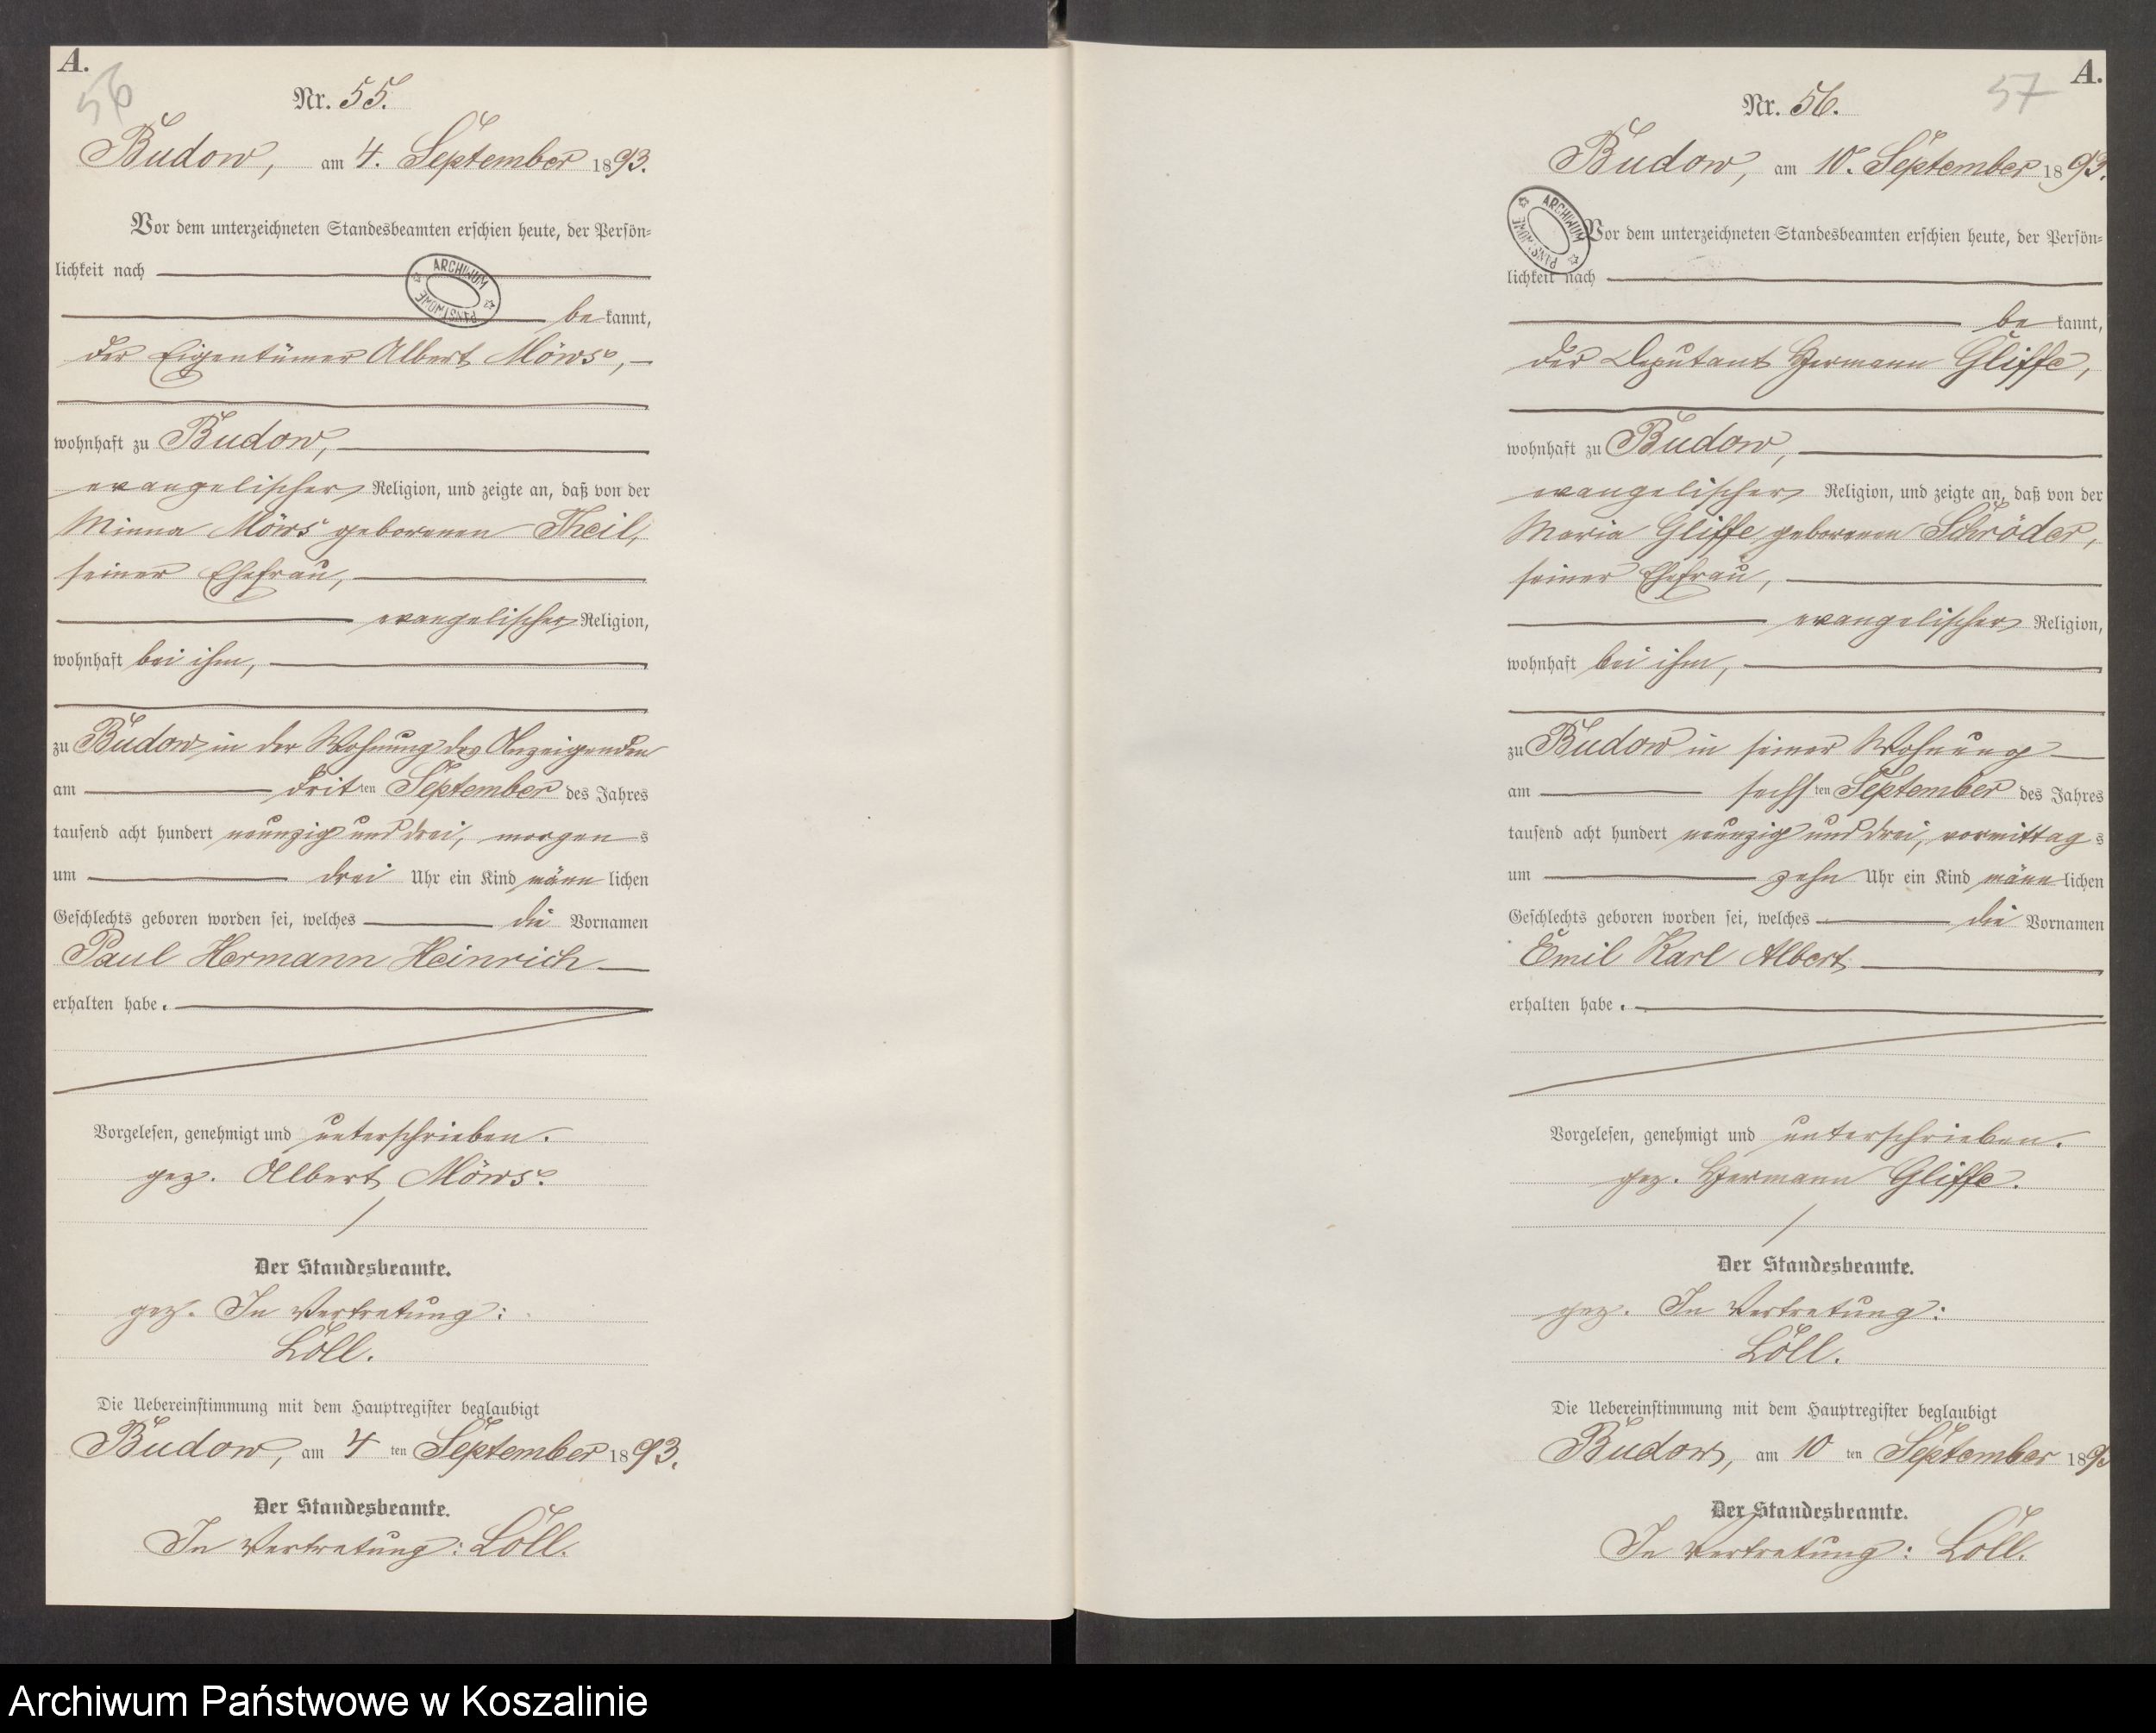 A.
56
Nr. 55.
Budow, am 4. September 1893.
Vor dem unterzeichneten Standesbeamten erschien heute, der Persön-
lichkeit nach
ARCHIWUM PAŃSTWOWE
be kannt,
der Eigentümer Albert Möws,
wohnhaft zu Budow,
evangelischer Religion, und zeigte an, daß von der
Minna Möws geborenen Theil,
seiner Ehefrau,
evangelischer Religion,
wohnhaft bei ihm,
zu Budow in der Wohnung des Anzeigenden
am dritten September des Jahres
tausend acht hundert neunzig und drei, morgens
um drei Uhr ein Kind männlichen
Geschlechts geboren worden sei, welches die Vornamen
Paul Hermann Heinrich
erhalten habe.
Vorgelesen, genehmigt und unterschrieben.
gez. Albert Möws.
Der Standesbeamte.
gez. In Vertretung:
Löll.
Die Uebereinstimmung mit dem Hauptregister beglaubigt
Budow, am 4 ten September 1893.
Der Standesbeamte.
In Vertretung: Löll.
A.
57
Nr. 56.
Budow, am 10. September 1893.
ARCHIWUM PAŃSTWOWE
Vor dem unterzeichneten Standesbeamten erschien heute, der Persön-
lichkeit nach
be kannt,
der Deputant Hermann Gliffe,
wohnhaft zu Budow,
evangelischer Religion, und zeigte an, daß von der
Maria Gliffe geborenen Schröder,
seiner Ehefrau,
evangelischer Religion,
wohnhaft bei ihm,
zu Budow in seiner Wohnung
am sechsten September des Jahres
tausend acht hundert neunzig und drei, vormittags
um zehn Uhr ein Kind männlichen
Geschlechts geboren worden sei, welches die Vornamen
Emil Karl Albert
erhalten habe.
Vorgelesen, genehmigt und unterschrieben.
gez. Hermann Gliffe.
Der Standesbeamte.
gez. In Vertretung:
Löll.
Die Uebereinstimmung mit dem Hauptregister beglaubigt
Budow, am 10 ten September 189
Der Standesbeamte.
In Vertretung: Löll.
Archiwum Państwowe w Koszalinie